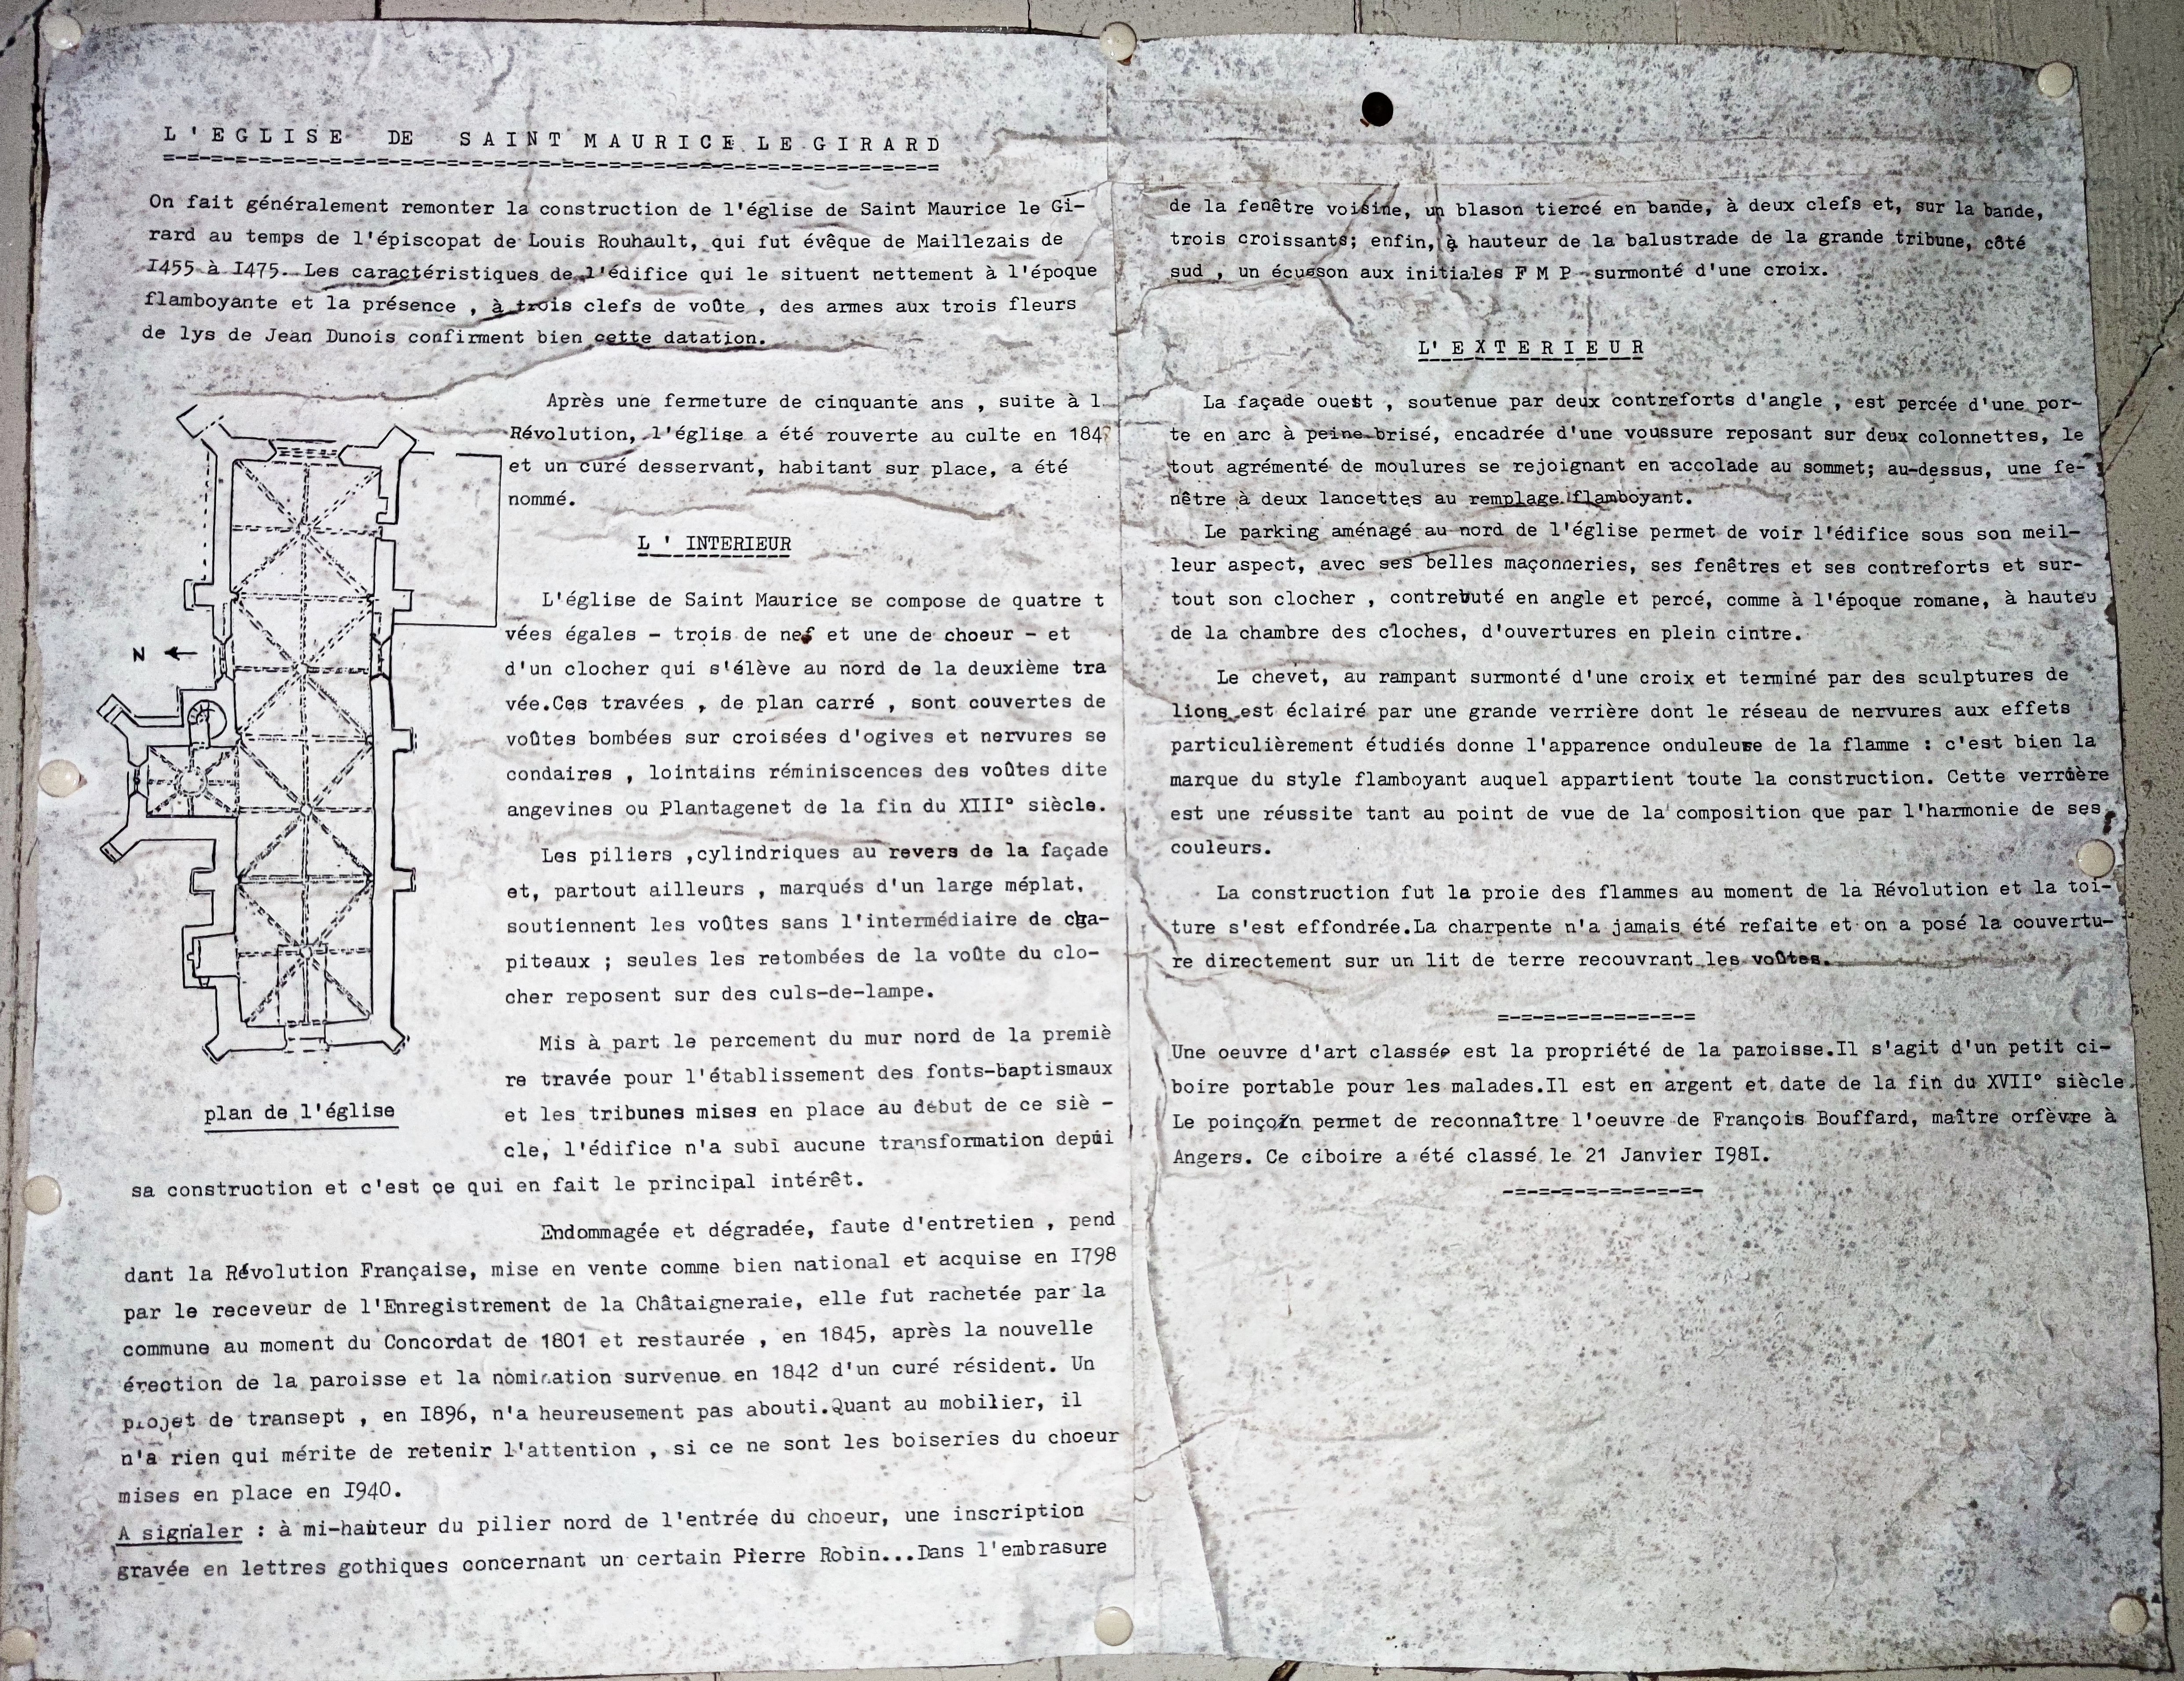 L'EGLISE DE SAINT MAURICE LE GIRARD
=-=-=-=-=-=-=-=-=-=-=-=-=-=-=-=-=-=-=-=-=-=-=-=-=-=-=
On fait généralement remonter la construction de l'église de Saint Maurice le Gi-
rard au temps de l'épiscopat de Louis Rouhault, qui fut évêque de Maillezais de
I455 à I475. Les caractéristiques de l'édifice qui le situent nettement à l'époque
flamboyante et la présence , à trois clefs de voûte , des armes aux trois fleurs
de lys de Jean Dunois confirment bien cette datation.
Après une fermeture de cinquante ans , suite à l
Révolution, l'église a été rouverte au culte en 184
et un curé desservant, habitant sur place, a été
nommé.
L ' INTERIEUR
L'église de Saint Maurice se compose de quatre t
vées égales - trois de nef et une de choeur - et
d'un clocher qui s'élève au nord de la deuxième tra
vée.Ces travées , de plan carré , sont couvertes de
voûtes bombées sur croisées d'ogives et nervures se
condaires , lointains réminiscences des voûtes dite
angevines ou Plantagenet de la fin du XIII° siècle.
Les piliers ,cylindriques au revers de la façade
et, partout ailleurs , marqués d'un large méplat,
soutiennent les voûtes sans l'intermédiaire de cha-
piteaux ; seules les retombées de la voûte du clo-
cher reposent sur des culs-de-lampe.
Mis à part le percement du mur nord de la premiè
re travée pour l'établissement des fonts-baptismaux
et les tribunes mises en place au début de ce siè -
cle, l'édifice n'a subi aucune transformation depui
sa construction et c'est ce qui en fait le principal intérêt.
N
plan de l'église
Endommagée et dégradée, faute d'entretien , pend
dant la Révolution Française, mise en vente comme bien national et acquise en I798
par le receveur de l'Enregistrement de la Châtaigneraie, elle fut rachetée par la
commune au moment du Concordat de 1801 et restaurée , en 1845, après la nouvelle
érection de la paroisse et la nomination survenue en 1842 d'un curé résident. Un
projet de transept , en I896, n'a heureusement pas abouti.Quant au mobilier, il
n'a rien qui mérite de retenir l'attention , si ce ne sont les boiseries du choeur
mises en place en I940.
A signaler : à mi-hauteur du pilier nord de l'entrée du choeur, une inscription
gravée en lettres gothiques concernant un certain Pierre Robin...Dans l'embrasure
de la fenêtre voisine, un blason tiercé en bande, à deux clefs et, sur la bande,
trois croissants; enfin, à hauteur de la balustrade de la grande tribune, côté
sud , un écusson aux initiales F M P surmonté d'une croix.
L' E X T E R I E U R
La façade ouest , soutenue par deux contreforts d'angle , est percée d'une por-
te en arc à peine brisé, encadrée d'une voussure reposant sur deux colonnettes, le
tout agrémenté de moulures se rejoignant en accolade au sommet; au-dessus, une fe-
nêtre à deux lancettes au remplage flamboyant.
Le parking aménagé au nord de l'église permet de voir l'édifice sous son meil-
leur aspect, avec ses belles maçonneries, ses fenêtres et ses contreforts et sur-
tout son clocher , contrebuté en angle et percé, comme à l'époque romane, à hauteu
de la chambre des cloches, d'ouvertures en plein cintre.
Le chevet, au rampant surmonté d'une croix et terminé par des sculptures de
lions est éclairé par une grande verrière dont le réseau de nervures aux effets
particulièrement étudiés donne l'apparence onduleuse de la flamme : c'est bien la
marque du style flamboyant auquel appartient toute la construction. Cette verrière
est une réussite tant au point de vue de la composition que par l'harmonie de ses
couleurs.
La construction fut la proie des flammes au moment de la Révolution et la toi-
ture s'est effondrée.La charpente n'a jamais été refaite et on a posé la couvertu-
re directement sur un lit de terre recouvrant les voûtes.
=-=-=-=-=-=-=-=-=-=
Une oeuvre d'art classée est la propriété de la paroisse.Il s'agit d'un petit ci-
boire portable pour les malades.Il est en argent et date de la fin du XVII° siècle.
Le poinçon permet de reconnaître l'oeuvre de François Bouffard, maître orfèvre à
Angers. Ce ciboire a été classé le 21 Janvier I98I.
-=-=-=-=-=-=-=-=-=-